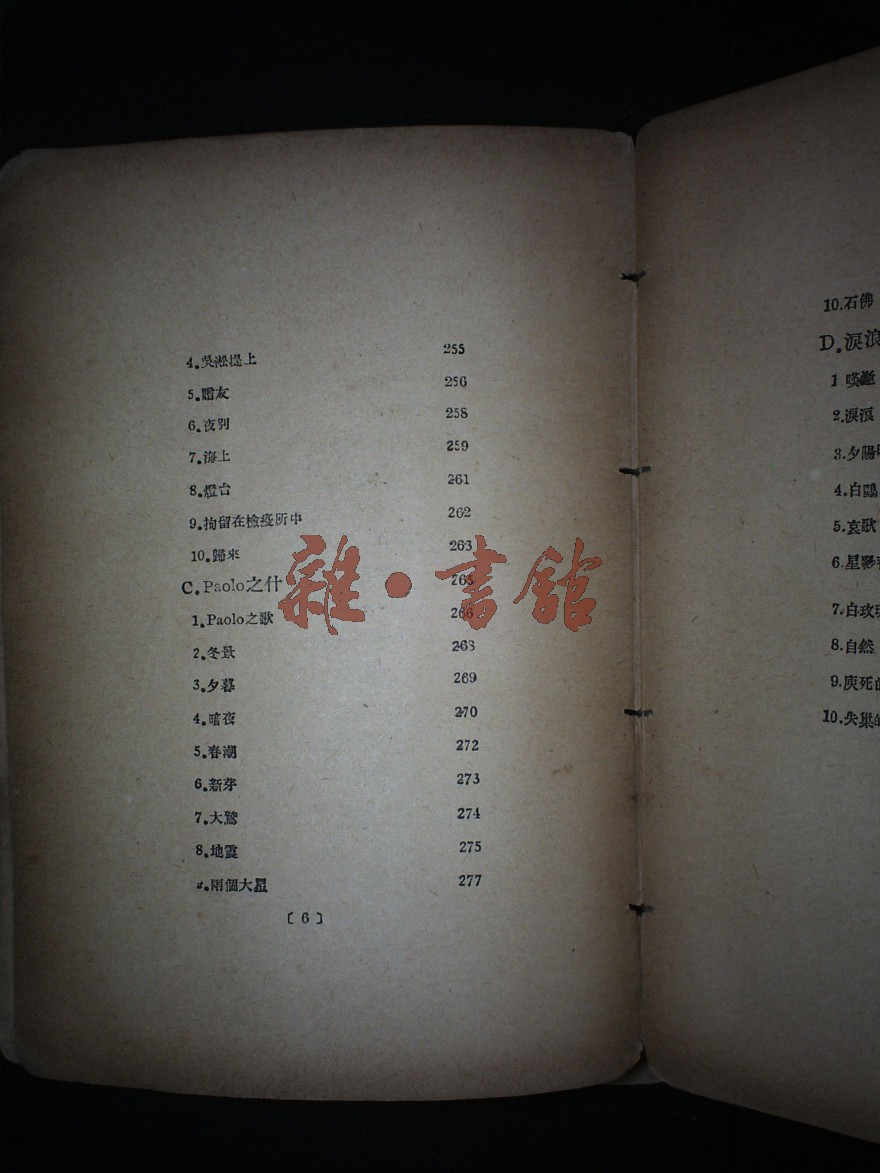 4.吳淞堤上 255
5.贈友 256
6.夜別 258
7.海上 259
8.燈台 261
9.拘留在檢疫所中 262
10.歸來 263
C.Paolo之什 265
1.Paolo之歌 266
2.冬景 268
3.夕暮 269
4.暗夜 270
5.春潮 272
6.新芽 273
7.大鷲 274
8.地震 275
9.兩個大星 277
〔6〕
雜·書館
10.石佛
D.淚浪
1.嘆逝
2.淚浪
3.夕陽時
4.白鷗
5.哀歌
6.星影
7.白玫瑰
8.自然
9.庾死的
10.失巢的